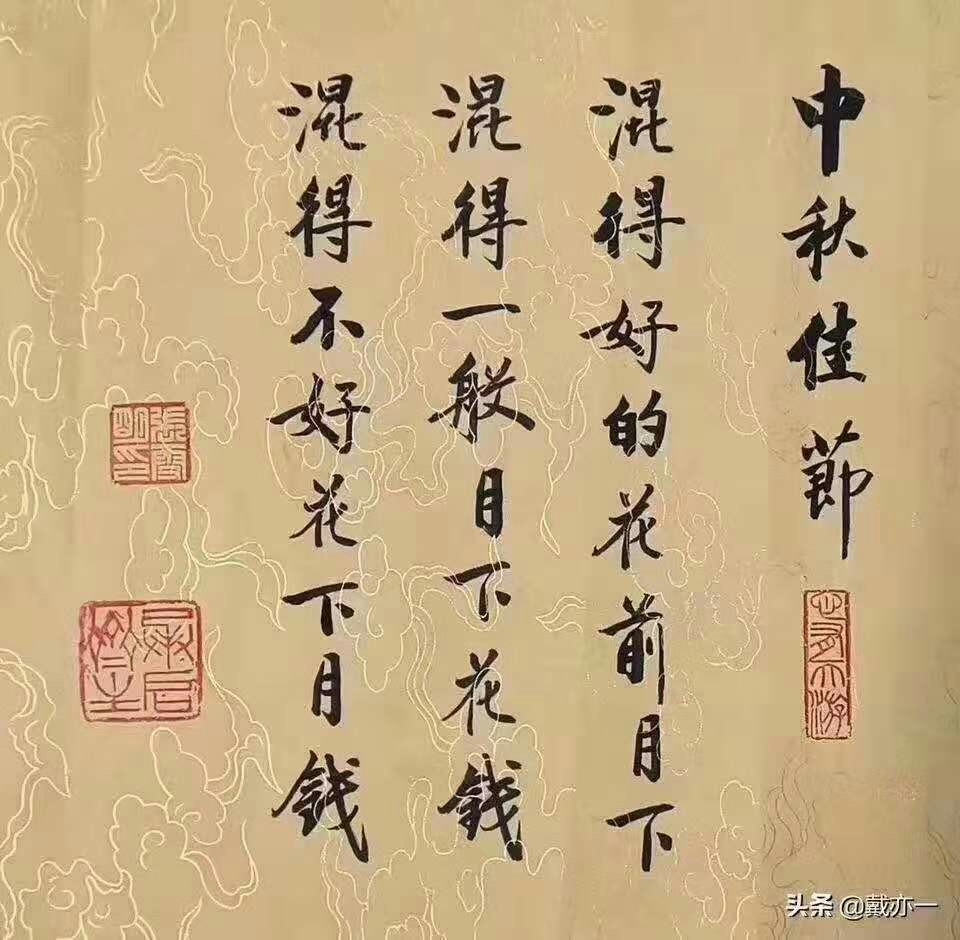 中秋佳節
混得好的花前月下
混得一般月下花錢
混得不好花下月錢
头条 @戴亦一